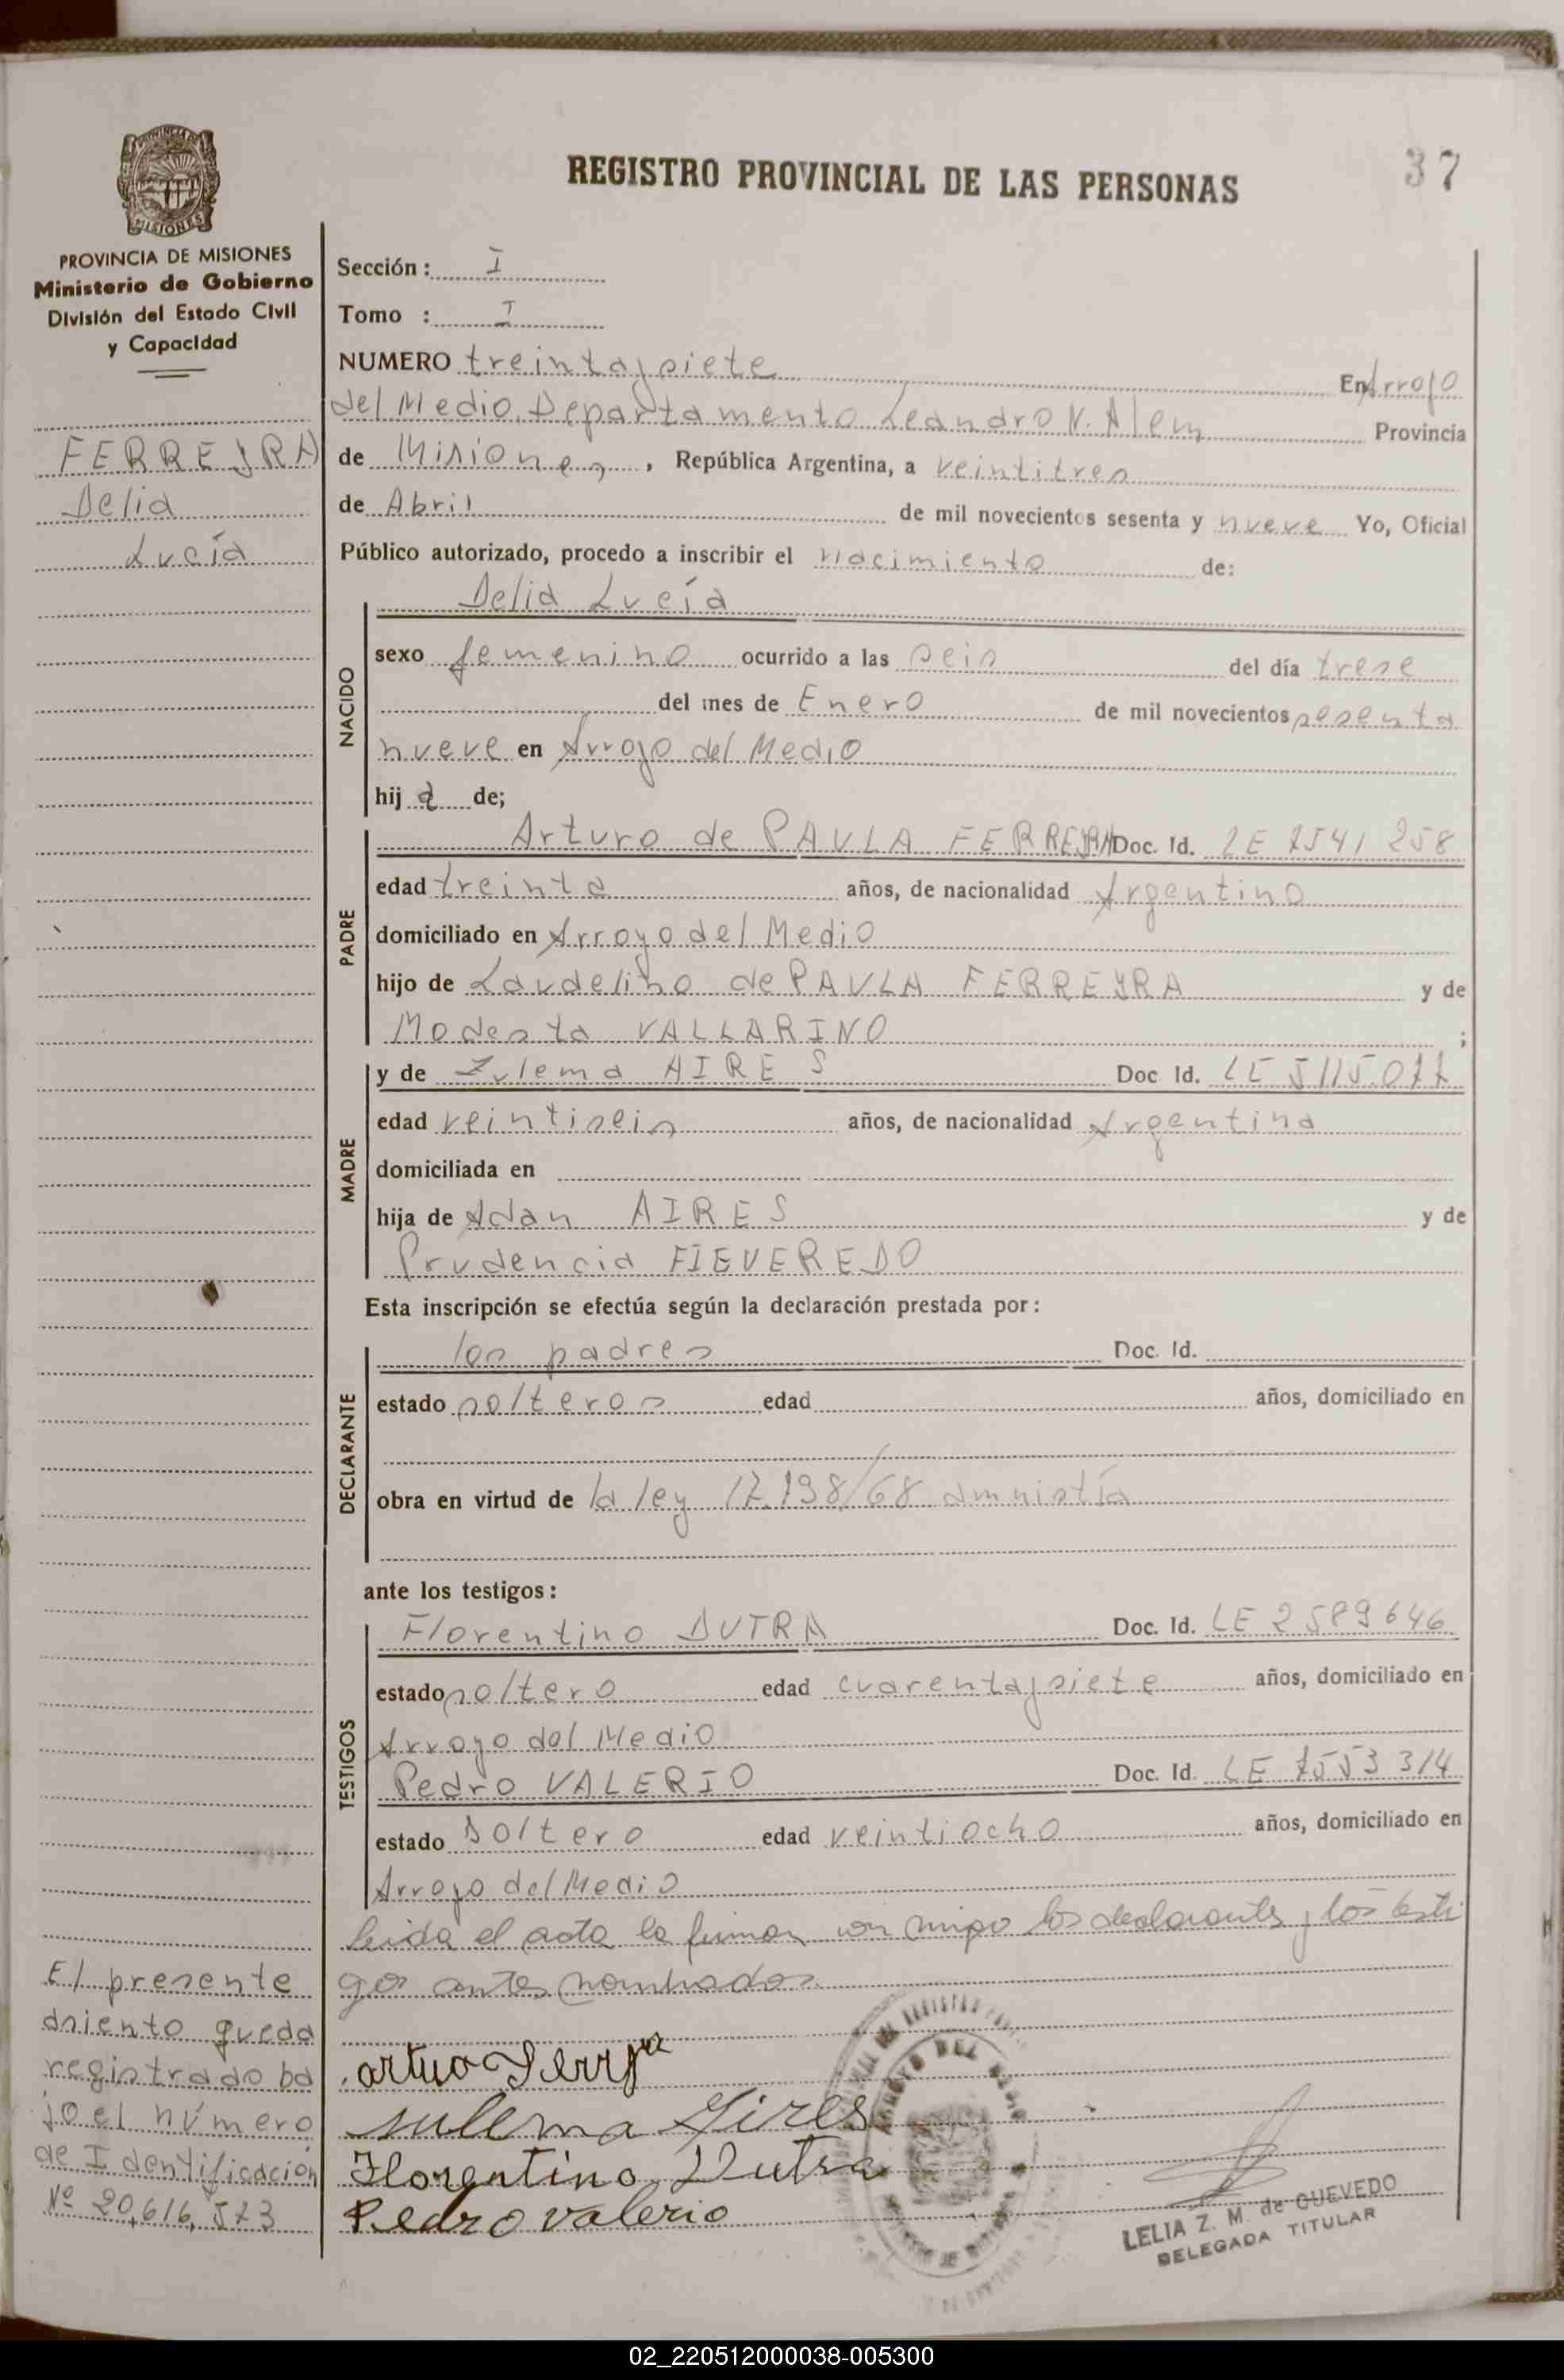 37
REGISTRO PROVINCIAL DE LAS PERSONAS
PROVINCIA DE MISIONES
Ministerio de Gobierno
División del Estado Civil
y Capacidad
FERREYRA
Delia
Lucía
Sección : I
Tomo : I
NUMERO treintaysiete En Arroyo
del Medio Departamento Leandro N. Alem Provincia
de Misiones , República Argentina, a veintitres
de Abril de mil novecientos sesenta y nueve Yo, Oficial
Público autorizado, procedo a inscribir el nacimiento de:
NACIDO
Delia Lucía
sexo femenino ocurrido a las seis del día trese
del mes de Enero de mil novecientos sesenta
nueve en Arroyo del Medio
hija de;
PADRE
Arturo de PAULA FERREYRA Doc. Id. LE 7541 258
edad treinta años, de nacionalidad Argentino
domiciliado en Arroyo del Medio
hijo de Laudelino de PAULA FERREYRA y de
Modesta VALLARINO ;
MADRE
y de Zulema AIRES Doc Id. LE 5115.077
edad veintiseis años, de nacionalidad Argentina
domiciliada en
hija de Adan AIRES y de
Prudencia FIEUEREDO
Esta inscripción se efectúa según la declaración prestada por :
DECLARANTE
los padres Doc. Id.
estado solteros edad años, domiciliado en
obra en virtud de la ley 17.198/68 amnistía
ante los testigos :
TESTIGOS
Florentino DUTRA Doc. Id. LE 2589646
estado soltero edad cuarentaysiete años, domiciliado en
Arroyo del Medio
Pedro VALERIO Doc. Id. LE 7553 314
estado Soltero edad veintiocho años, domiciliado en
Arroyo del Medio
leida el acta la firman con migo los declarantes y los testi
gos antes nombrados
El presente
asiento queda
registrado ba
jo el número
de Identificación
Nº 20,616,573
arturo Ferryra
sulema Aires
Florentino Dutra
Pedro valerio
ARROYO DEL MEDIO
LELIA Z. M. de QUEVEDO
DELEGADA TITULAR
02_220512000038-005300